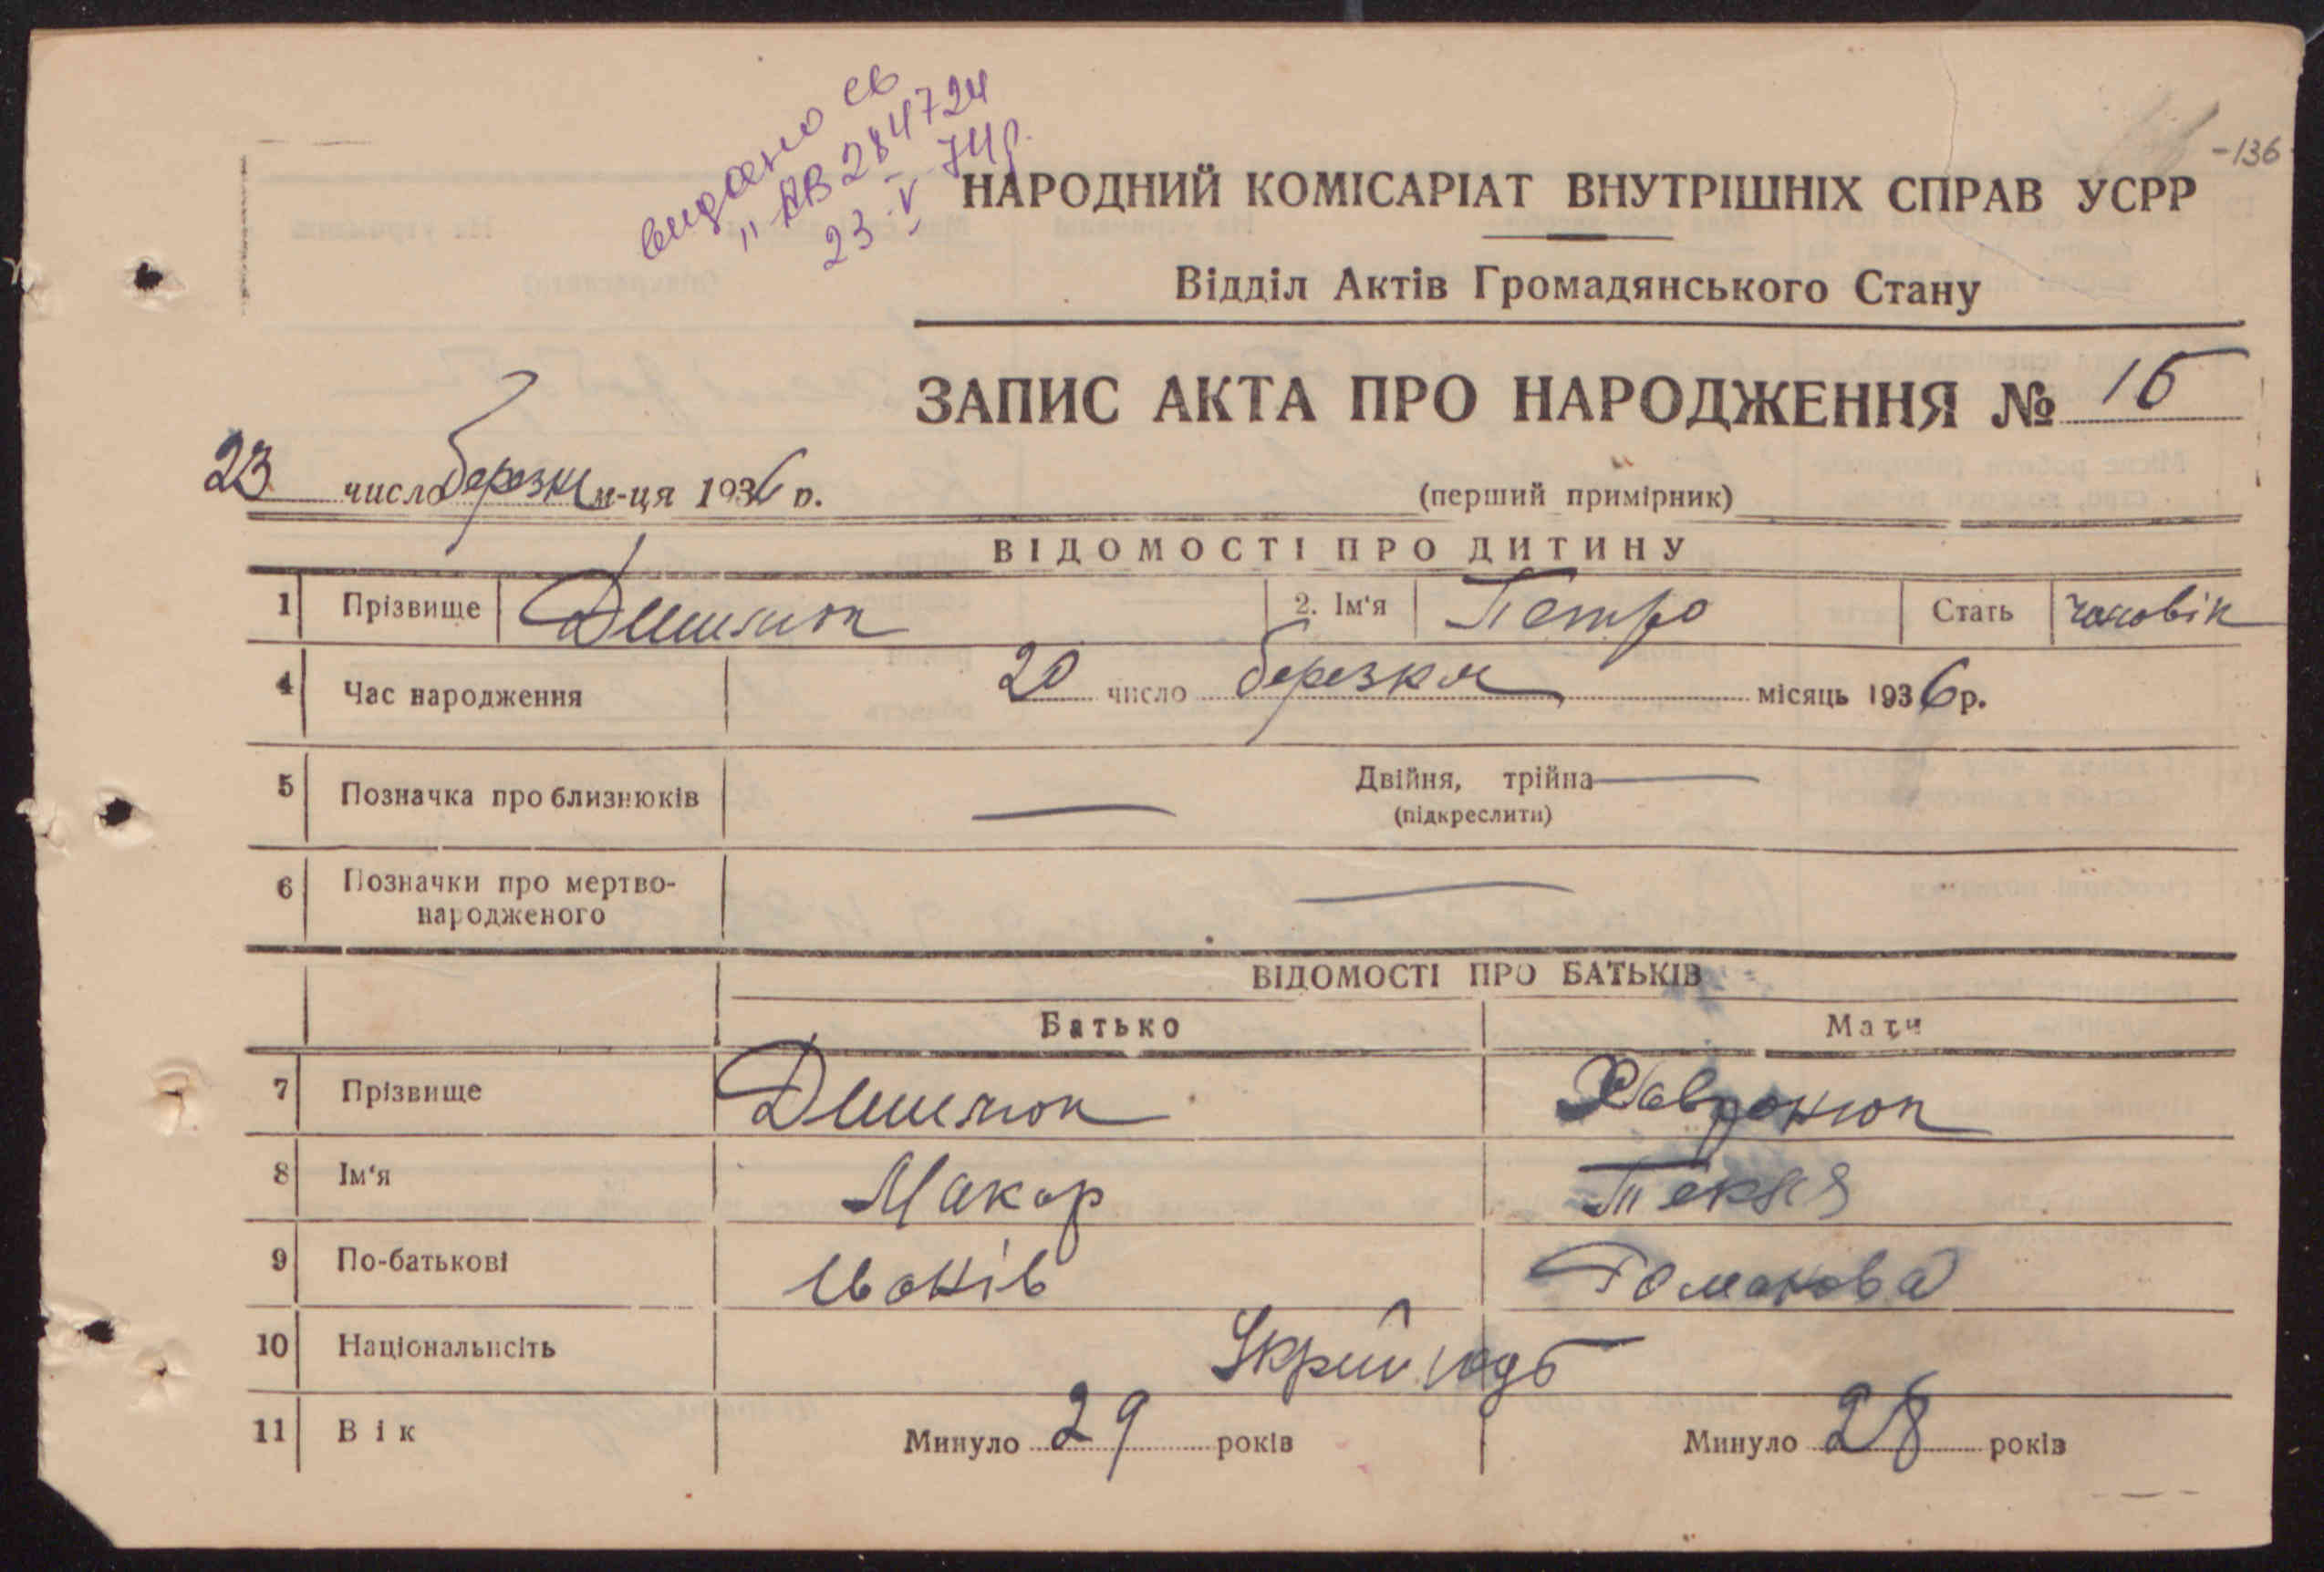 видано св
„ АВ 284724
23 V 74р.
-136
НАРОДНИЙ КОМІСАРІАТ ВНУТРІШНІХ СПРАВ УСРР
Відділ Актів Громадянського Стану
ЗАПИС АКТА ПРО НАРОДЖЕННЯ № 15
23 число березня м-ця 1936 р.
(перший примірник)
ВІДОМОСТІ ПРО ДИТИНУ
1 Прізвище 2. Ім‘я Петро Стать чоловік
4 Час народження 20 число березня місяць 1936 р.
5 Позначка про близнюків Двійня, трійна
(підкреслити)
6 Позначки про мертво-
народженого
ВІДОМОСТІ ПРО БАТЬКІВ
Батько Мати
7 Прізвище Хавронюк
8 Ім‘я Макар Текля
9 По-батькові Іванів Романова
10 Національнсіть
11 Вік Минуло 29 років Минуло 28 років